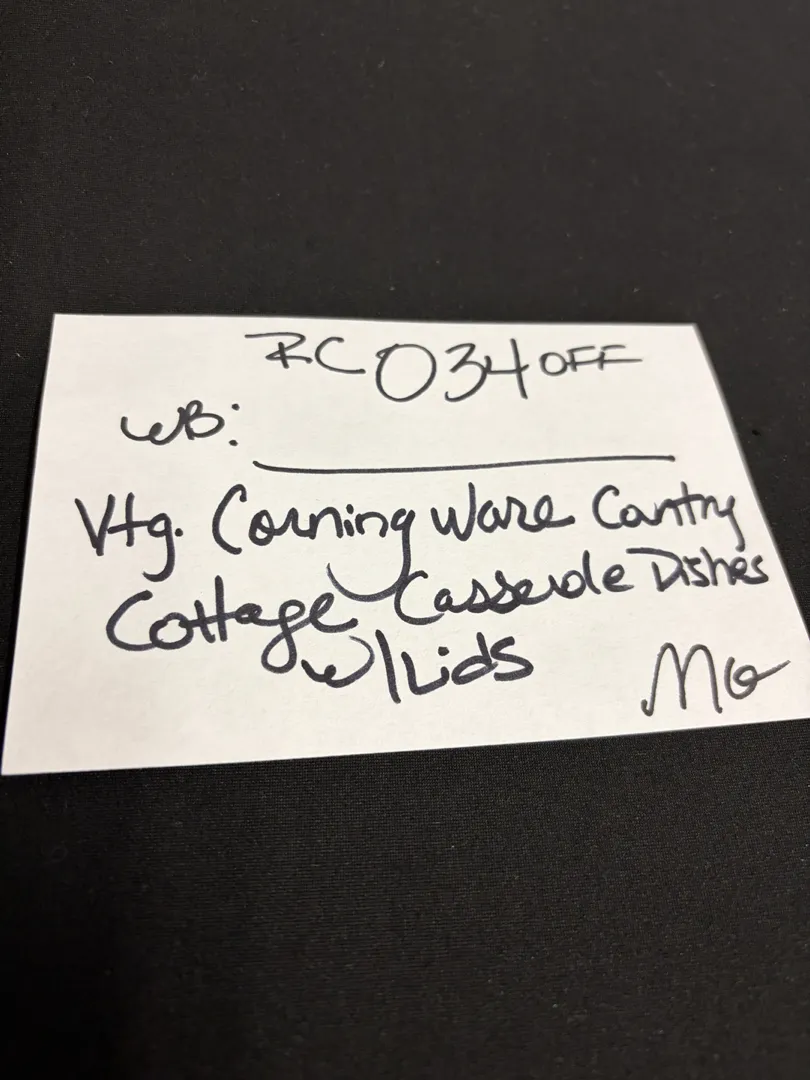 RC034OFF
WB:
Vtg. Corning Ware Cantry
Cottage Casserole Dishes
w/Lids
MG